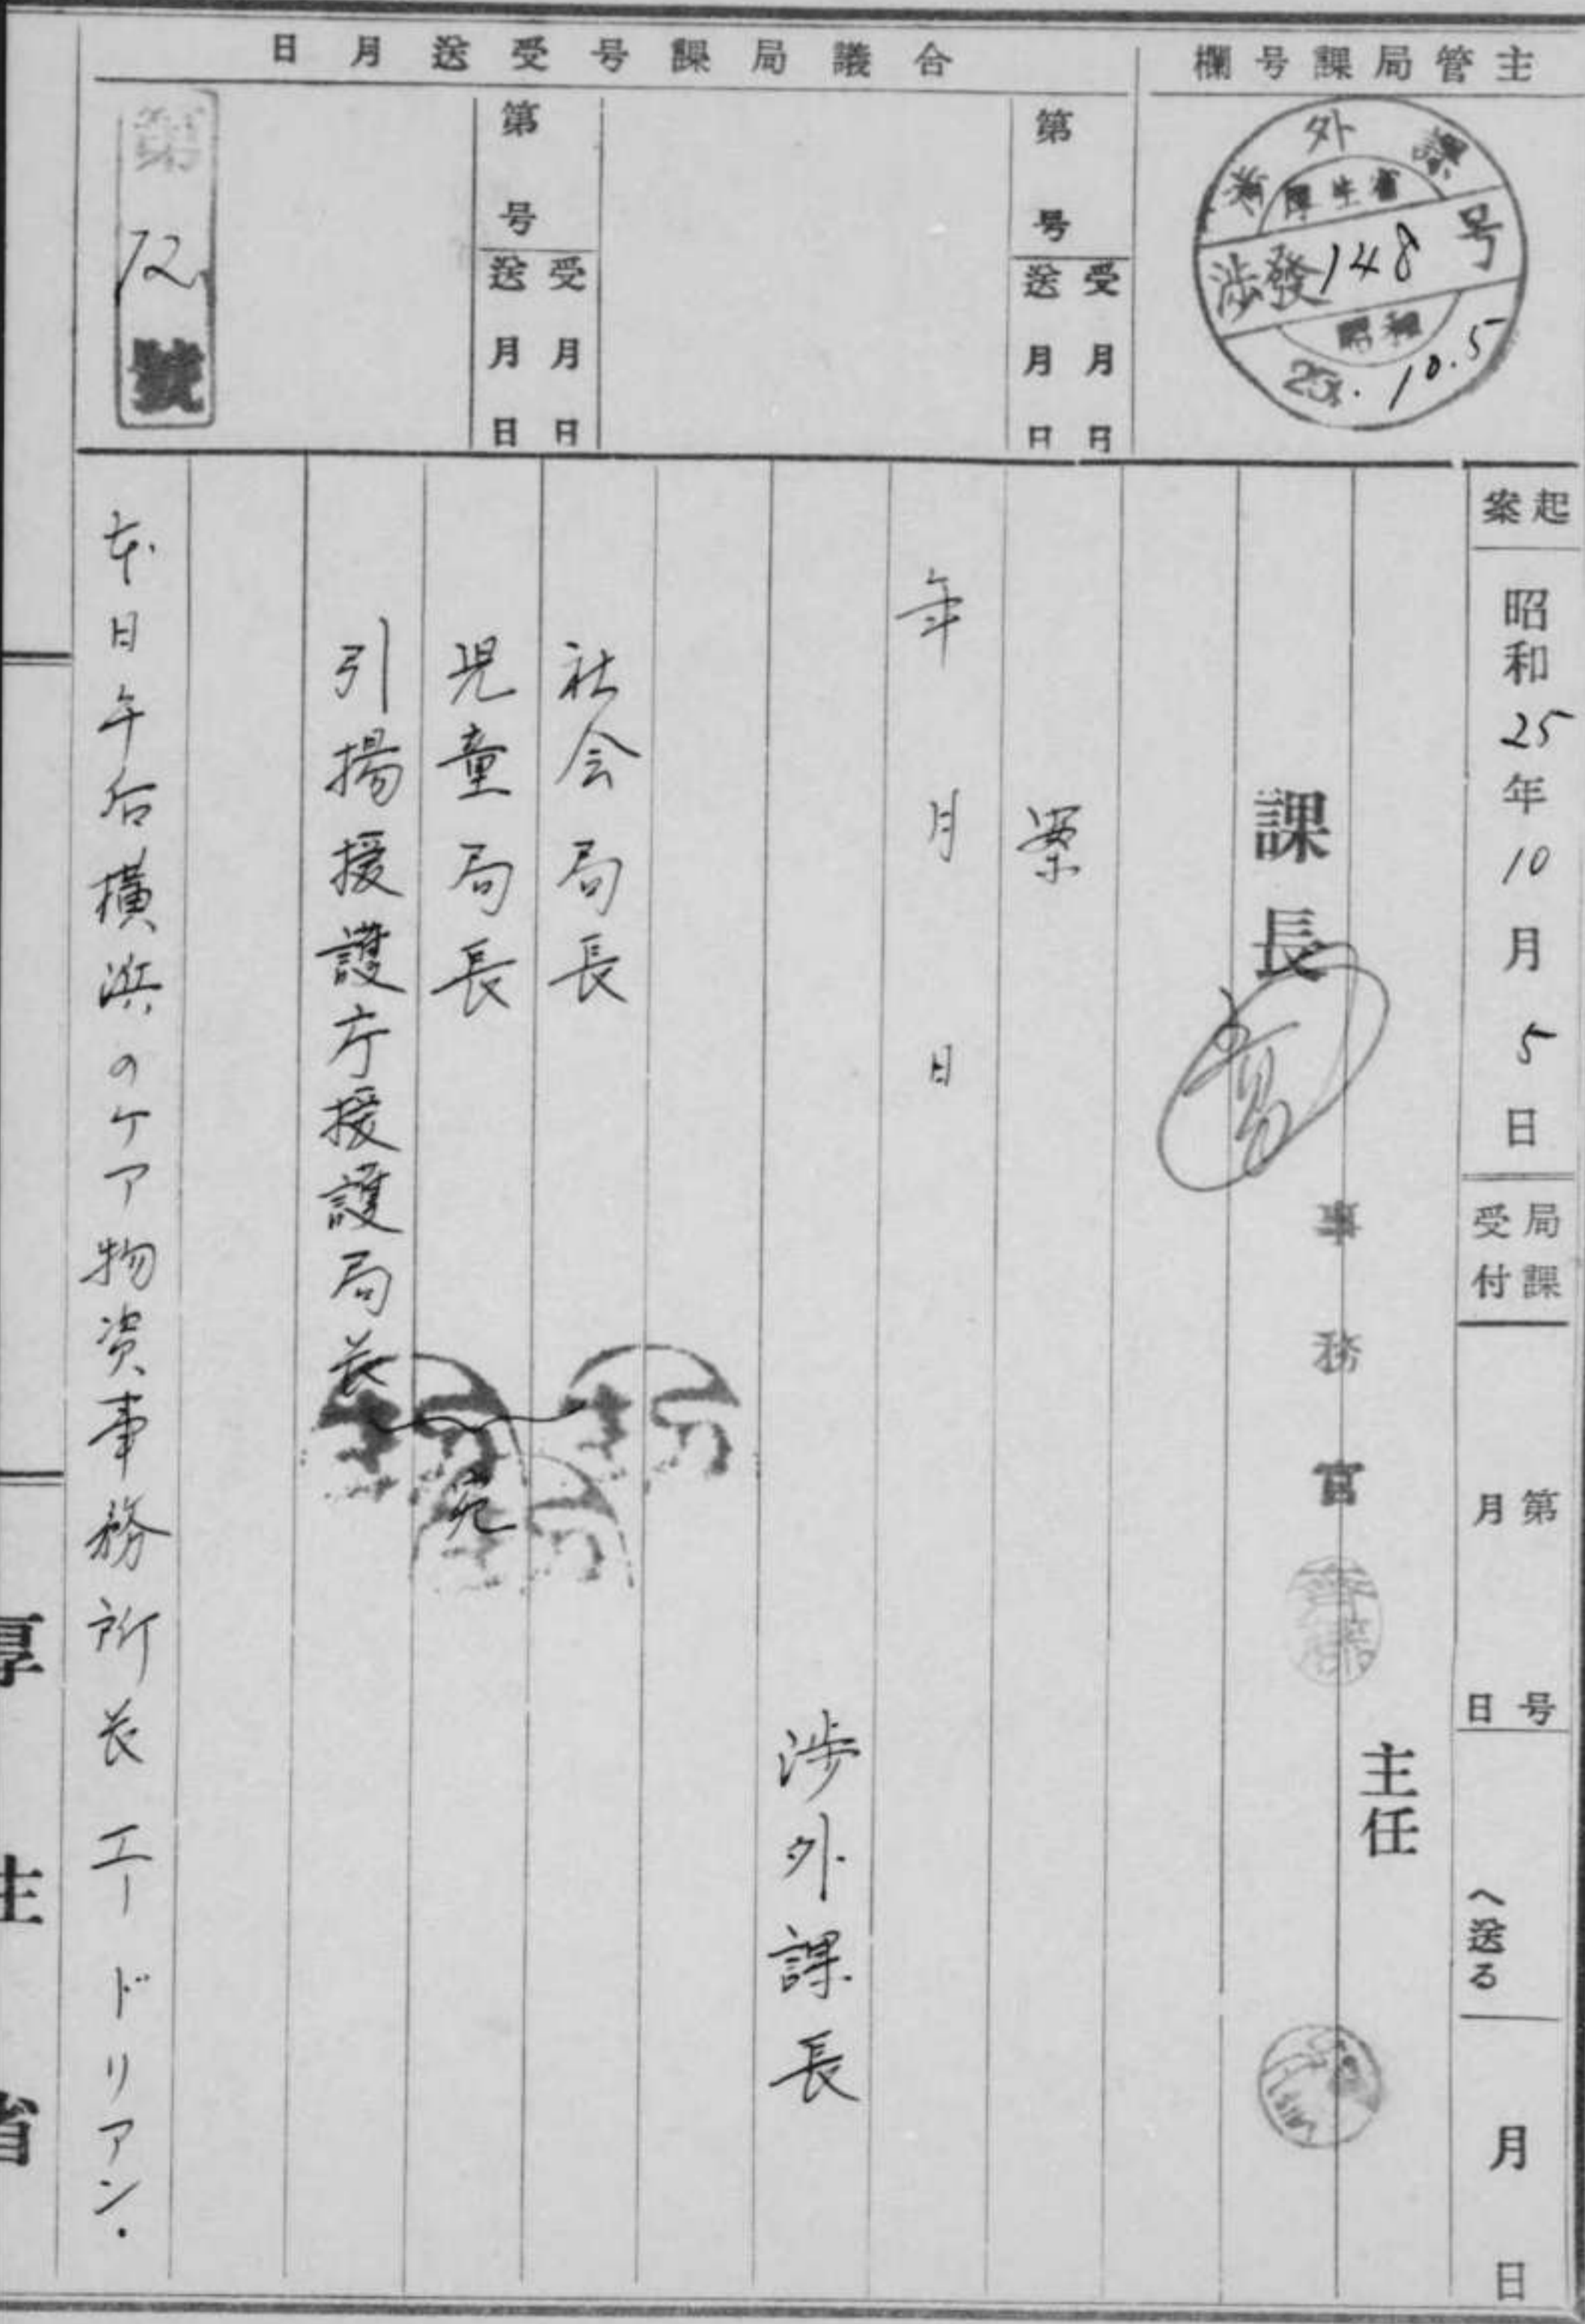 主管局課号欄
合議局課号受送月日
渉外課
厚生省
渉發148号
昭和
25.10.5
第 号
受 月 日
送 月 日
第 号
受 月 日
送 月 日
第72號
起案
昭和25年10月5日
局課受付
第 号
月 日
へ送る
月 日
主任
事務官
齊藤
課長
案
年 月 日
渉外課長
社会局長
児童局長
引揚援護庁援護局長
宛
本日午后横浜のケア物資事務所長エードリアン・
厚生省